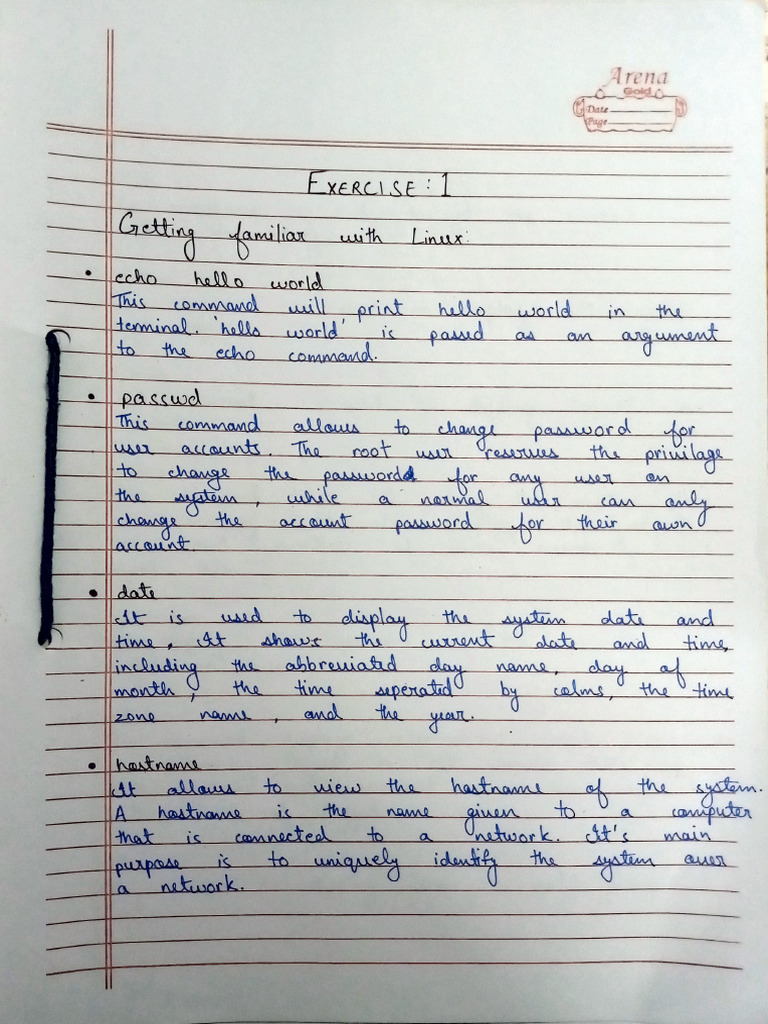 Arena
Gold
Date
Page
EXERCISE : 1
Getting familiar with Linux:
• echo hello world
This command will print hello world in the
terminal. 'hello world' is passed as an argument
to the echo command.
• passwd
This command allows to change password for
user accounts. The root user reserves the privilage
to change the password for any user on
the system, while a normal user can only
change the account password for their own
account.
• date
It is used to display the system date and
time. It shows the current date and time,
including the abbreviated day name, day of
month, the time seperated by colms, the time
zone name, and the year.
• hostname
It allows to view the hostname of the system.
A hostname is the name given to a computer
that is connected to a network. It's main
purpose is to uniquely identify the system over
a network.